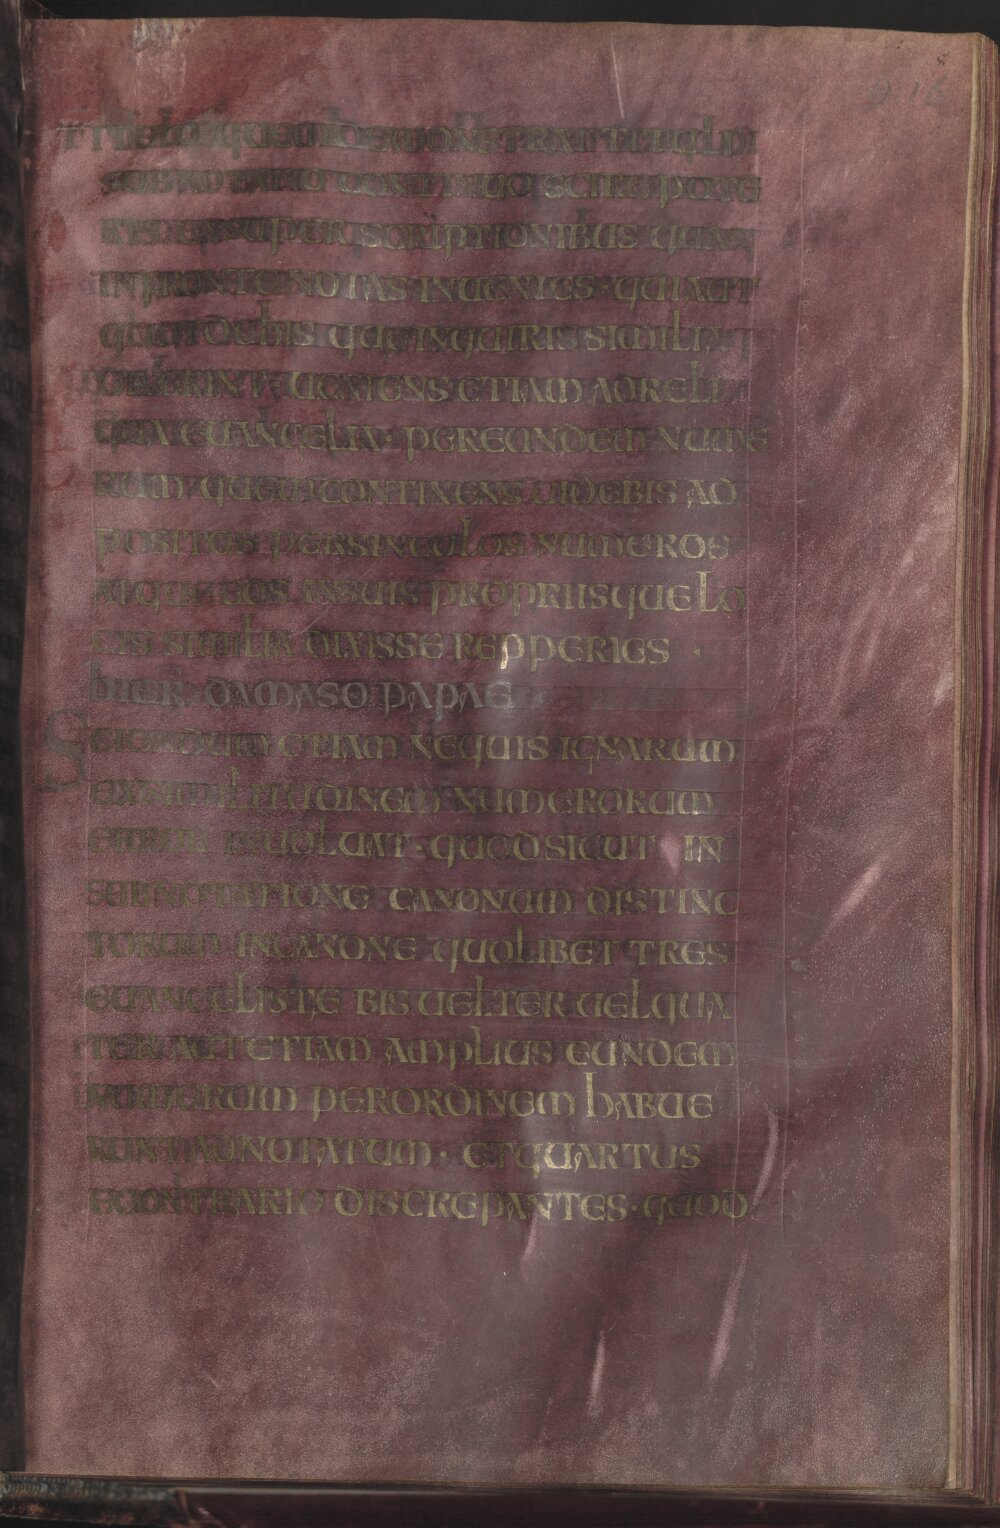 SUBNOTATIO CONTINUO SCIRE POTE
RIS EX SUPER SCRIPTIONIBUS QUAS
IN FRONTE NOTAS INUENIES · QUI AUT
QUOT DE HIS QUE INQUIRIS SIMILIA
DIXERINT UENIENS ETIAM AD RELI
QUA EUANGELIA · PER EUNDEM NUME
RUM QUEM CONTINENS UIDEBIS AD
POSITOS PER SINGULOS NUMEROS
ATQUE EOS IN SUIS PROPRIISQUE LO
CIS SIMILIA DIXISSE REPPERIES ·
HIER DAMASO PAPAE
SCIENDUM ETIAM NE QUIS IGNARUM
EX SIMILITUDINEM NUMERORUM
ERROR INUOLUAT · QUOD SICUT IN
SUBNOTATIONE CANONUM DISTINC
TORUM IN CANONE QUOLIBET TRES
EUANGELISTE BIS UEL TER UEL QUA
TER AUT ETIAM AMPLIUS EUNDEM
NUMERUM PER ORDINEM HABUE
RUNT ADNOTATUM · ET QUARTUS
ECONTRARIO DISCREPANTES · QUOD